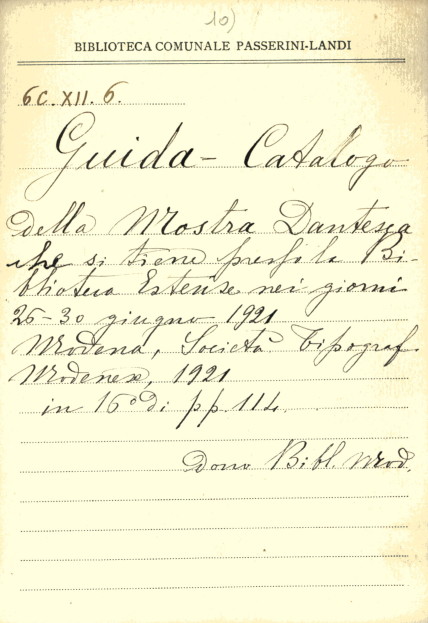 10)
BIBLIOTECA COMUNALE PASSERINI-LANDI
6C. XII. 6.
Guida - Catalogo
della Mostra Dantesca
che si tiene presso la Bi-
blioteca Estense nei giorni
25-30 giugno 1921
Modena, Società Tipograf.
Modenese, 1921
in 16° di pp. 114.
Dono Bibl. Mod.